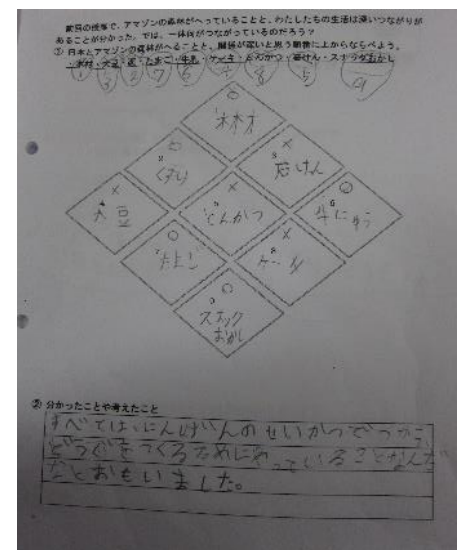 前回の授業で、アマゾンの森林がへっていることと、わたしたちの生活は深いつながりが
あることが分かった。では、一体何がつながっているのだろう?
① 日本とアマゾンの森林がへることと、関係が深いと思う順番に上からならべよう。
・木材・大豆・薬・たまご・牛乳・ケーキ・とんかつ・石けん・スナックおかし
木材
くすり
石けん
大豆
とんかつ
牛にゅう
たまご
ケーキ
スナック
おかし
② 分かったことや考えたこと
すべては、にんげんのせいかつでつかう、
どうぐをつくるためにやっていることなんだ
なとおもいました。